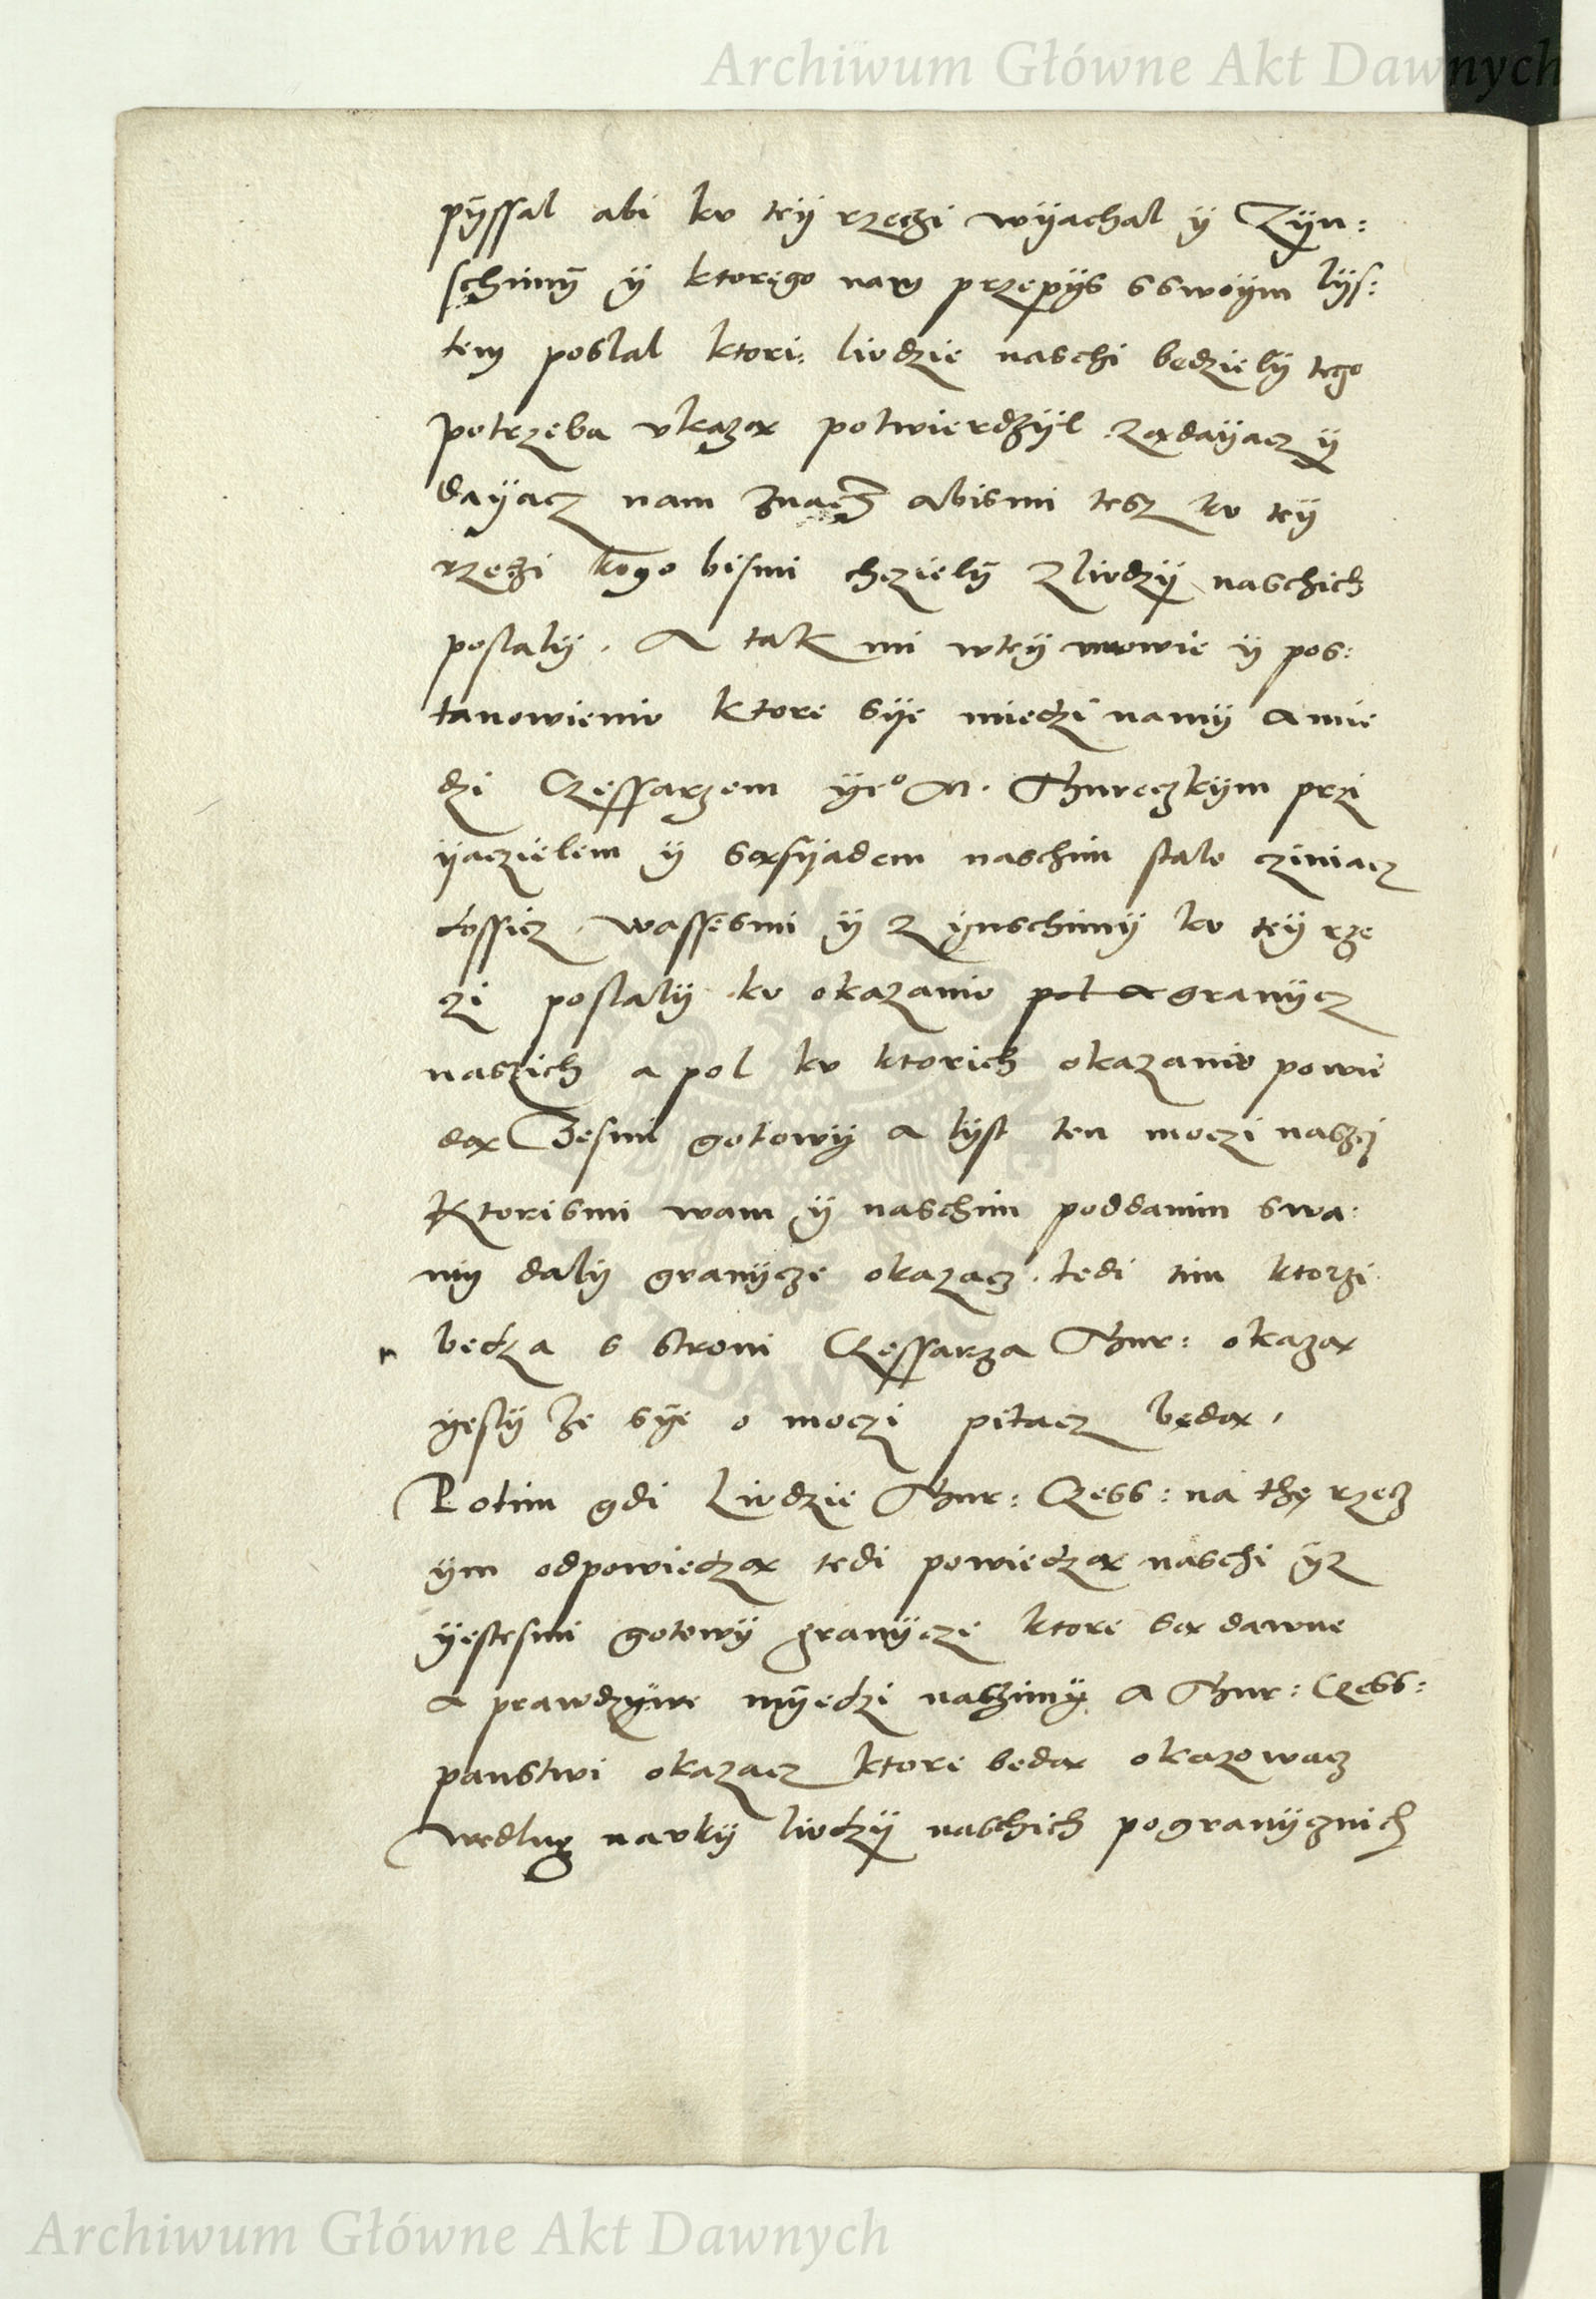 Archiwum Główne Akt Dawnych
pÿssal abi ku teÿ rzeczi wÿachal ÿ Zÿn:
schimÿ ÿ ktorego nam przepÿs sswoÿm lÿs:
tem poslal ktori: liudzie naschi bedzielÿ tego
potrzeba ukazą potwierdzÿl ządaÿacz ÿ
daÿacz nam znacz abismi tesz ku teÿ
rzeczi kogo bismi chczielÿ z liudzÿ naschich
poslalÿ. A tak mi wteÿ umowie ÿ pos:
tanowieniu ktore sÿe miedzi namÿ a mie
dzi Czessarzem ÿeo M. Thureczkÿm przi
ÿaczielem ÿ sąsÿadem naschim stalo cziniacz
dossicz, wassesmi ÿ z ÿnschimÿ ku teÿ rze
czi poslalÿ ku okazaniu pol a granÿcz
naszich a pol ku ktorich okazaniu powie
dą Zesmi gotowÿ a lÿst ten moczi naszeÿ
Ktorismi wam ÿ naschim poddanim swa:
mÿ dalÿ granÿcze okazacz. tedi tim ktorzi
bedza s stroni Czessarza Thur: okazą
ÿeslÿ ze sÿe o moczi pitacz bedą,
Potim gdi Liudzie Thur: Czess: na thę rzecz
ÿm odpowiedzą tedi powiedzą naschi ÿz
ÿestesmi gotowÿ granÿcze ktore są dawne
a prawdzÿwe mÿedzi naszimÿ a Thur: Czess:
panstwi okazacz ktore bedą okazowacz
wedlug naukÿ liudzÿ naschich pogranÿcznich
Archiwum Główne Akt Dawnych